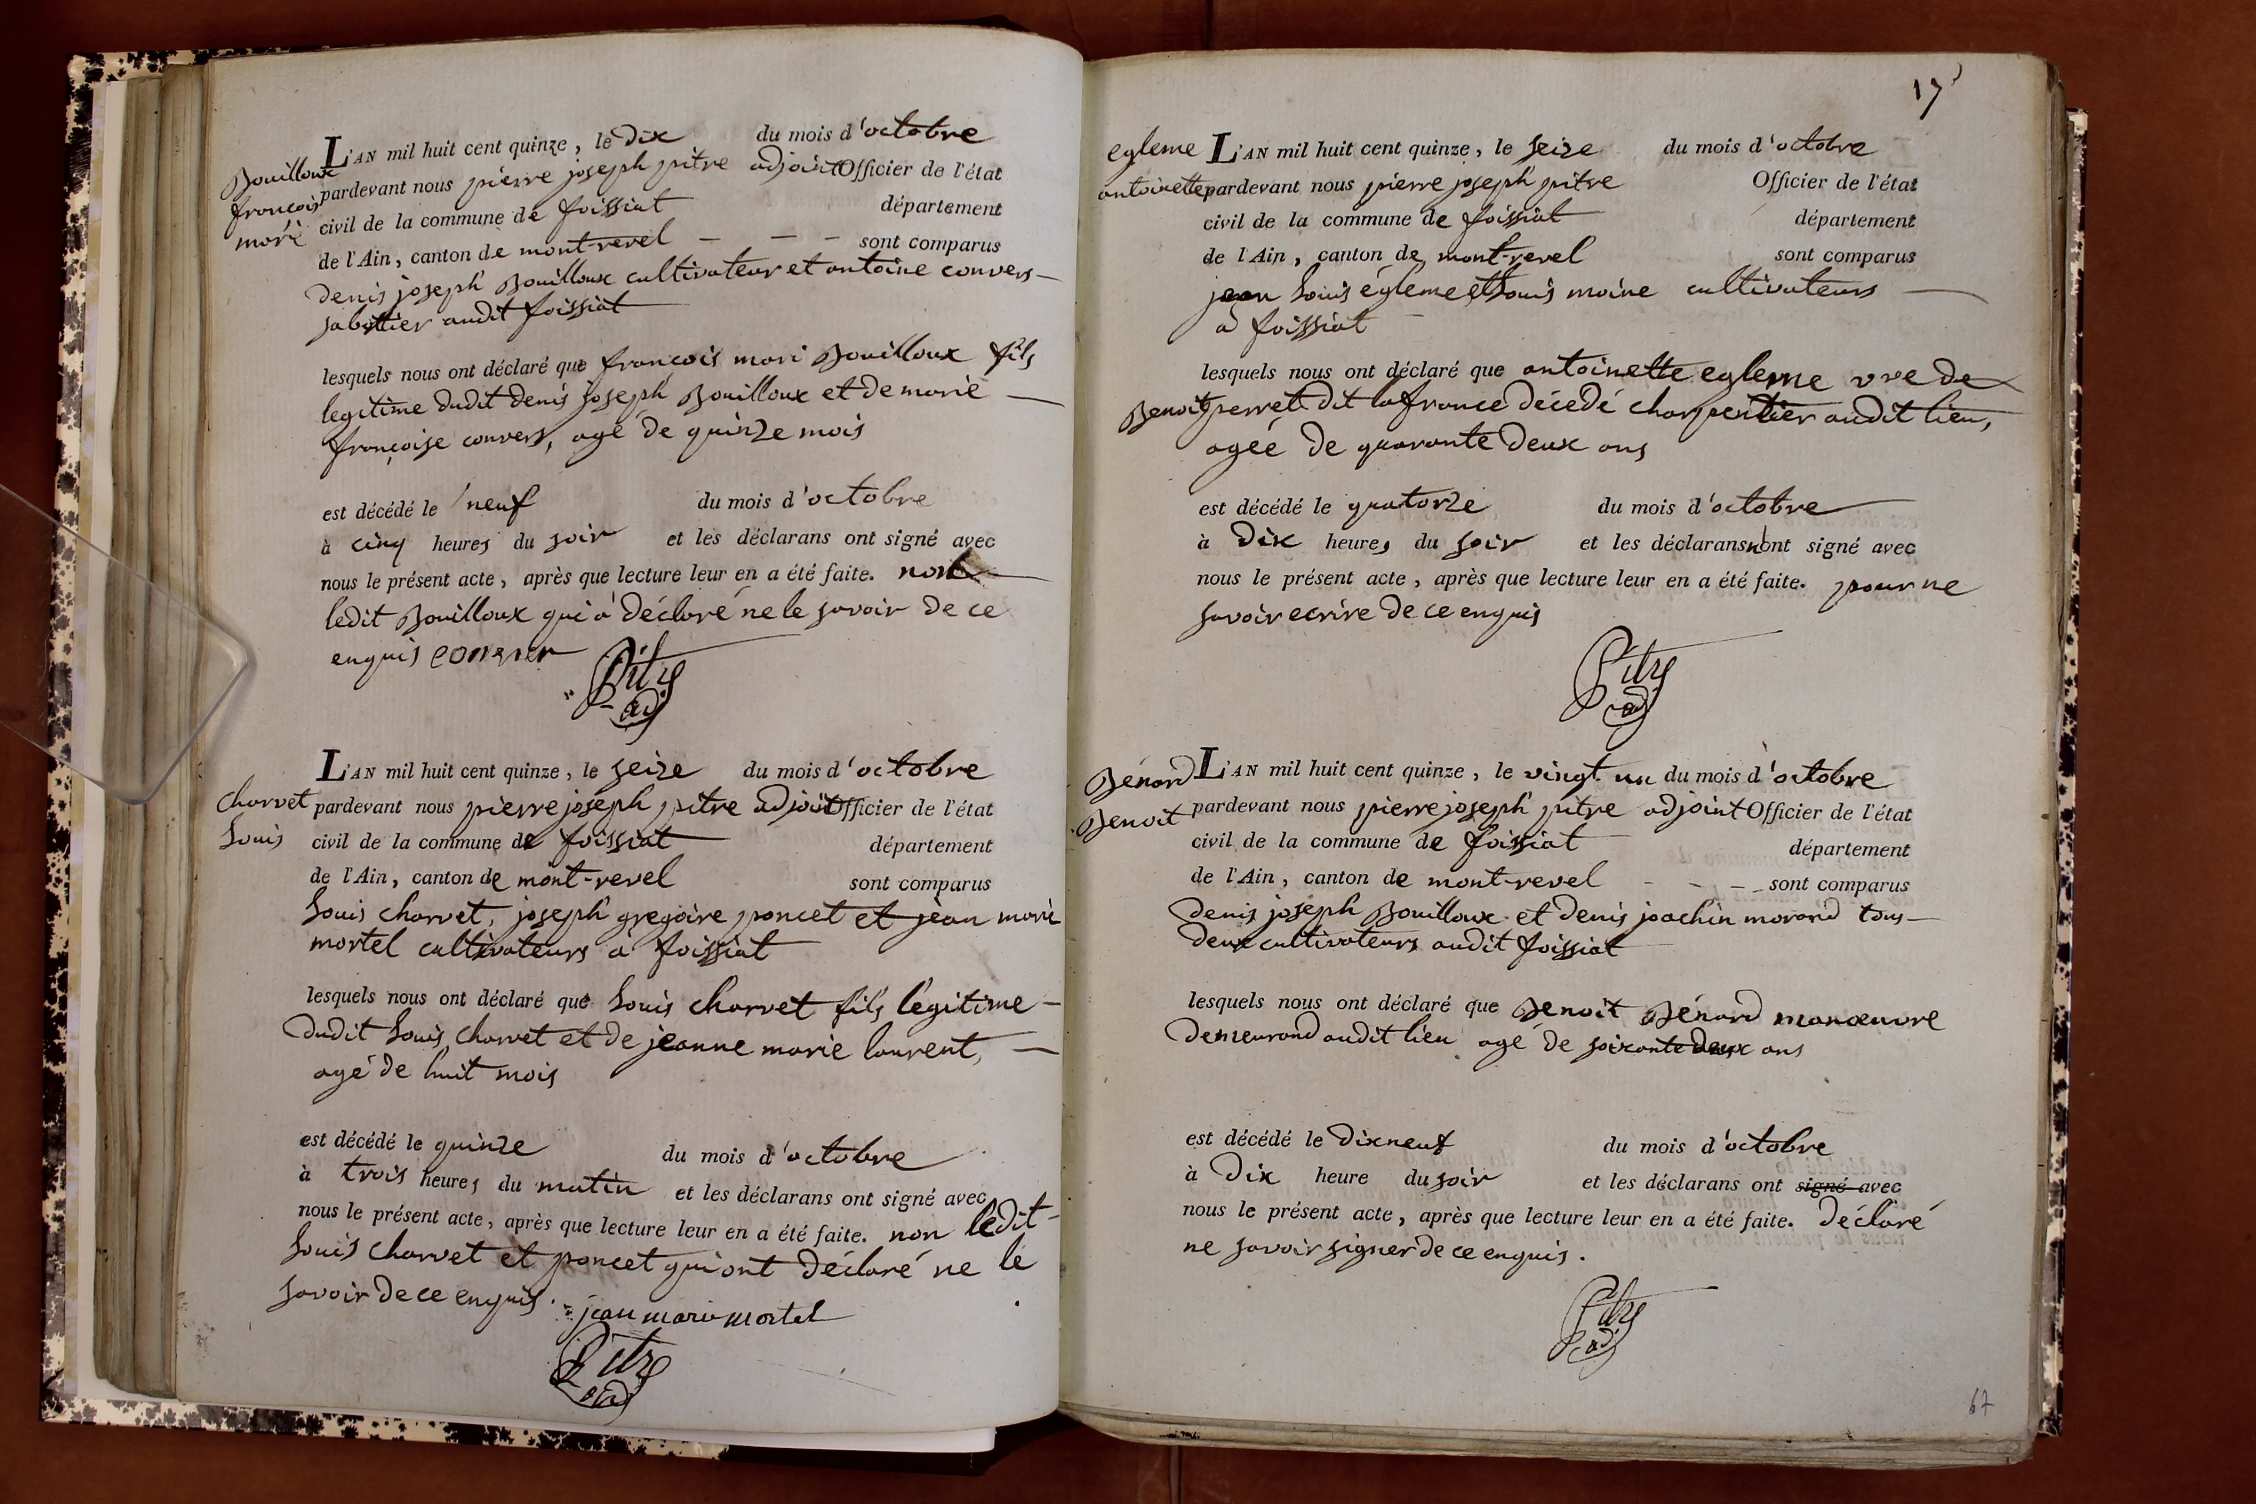 Bouilloux
francois
mari
L'AN mil huit cent quinze, le dix du mois d'octobre
pardevant nous pierre joseph pitre adjoint Officier de l'état
civil de la commune de foissiat département
de l'Ain, canton de mont-revel - - - sont comparus
denis joseph Bouilloux cultivateur et antoine convers
sabottier audit foissiat
lesquels nous ont déclaré que francois mari Bouilloux fils
legitime dudit denis joseph Bouilloux et de marie
françoise convers, agé de quinze mois
est décédé le neuf du mois d'octobre
à cinq heures du soir et les déclarans ont signé avec
nous le présent acte, après que lecture leur en a été faite. non
ledit Bouilloux qui a déclaré ne le savoir de ce
enquis
Pitre
adj
Charvet
Louis
L'AN mil huit cent quinze, le seize du mois d'octobre
pardevant nous pierre joseph pitre adjoint Officier de l'état
civil de la commune de foissiat département
de l'Ain, canton de mont-revel sont comparus
Louis charvet, joseph gregoire poncet et jean marie
mortel cultivateurs a foissiat
lesquels nous ont déclaré que Louis charvet fils légitime
dudit Louis charvet et de jeanne marie laurent,
agé de huit mois
est décédé le quinze du mois d'octobre
à trois heures du matin et les déclarans ont signé avec
nous le présent acte, après que lecture leur en a été faite. non ledit
Louis charvet et poncet qui ont déclaré ne le
savoir de ce enquis.
jean marie mortel
Pitre
adj
17
egleme
antoinette
L'AN mil huit cent quinze, le seize du mois d'octobre
pardevant nous pierre joseph pitre Officier de l'état
civil de la commune de foissiat département
de l'Ain, canton de mont-revel sont comparus
jean Louis égleme et Louis moine cultivateurs
a foissiat
lesquels nous ont déclaré que antoinette egleme vve de
Benoit perret dit lafrance décedé charpentier audit lieu,
agée de quarante deux ans
est décédé le quatorze du mois d'octobre
à dix heures du soir et les déclarans n'ont signé avec
nous le présent acte, après que lecture leur en a été faite. pour ne
savoir ecrire de ce enquis
Pitre
adj
Bénard
Benoit
L'AN mil huit cent quinze, le vingt un du mois d'octobre
pardevant nous pierre joseph pitre adjoint Officier de l'état
civil de la commune de foissiat département
de l'Ain, canton de mont-revel - - - sont comparus
denis joseph Bouilloux et denis joachin morand tous
deux cultivateurs audit foissiat
lesquels nous ont déclaré que Benoit Bénard manœuvre
demeurand audit lieu agé de soixante deux ans
est décédé le dix neuf du mois d'octobre
à dix heure du soir et les déclarans ont signé avec
nous le présent acte, après que lecture leur en a été faite. déclaré
ne savoir signer de ce enquis.
Pitre
adj
67